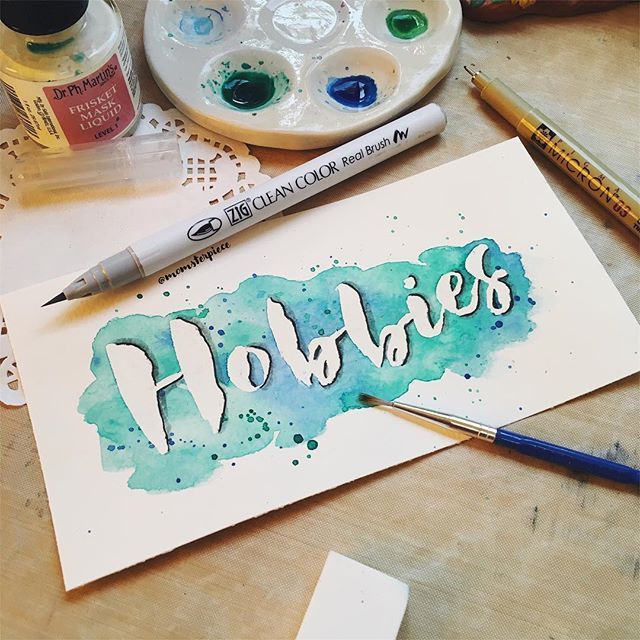 Dr. Ph. Martin's
FRISKET
MASK
LIQUID
LEVEL 1
ZIG CLEAN COLOR Real Brush
MICRON 03
@momsterpiece
Hobbies